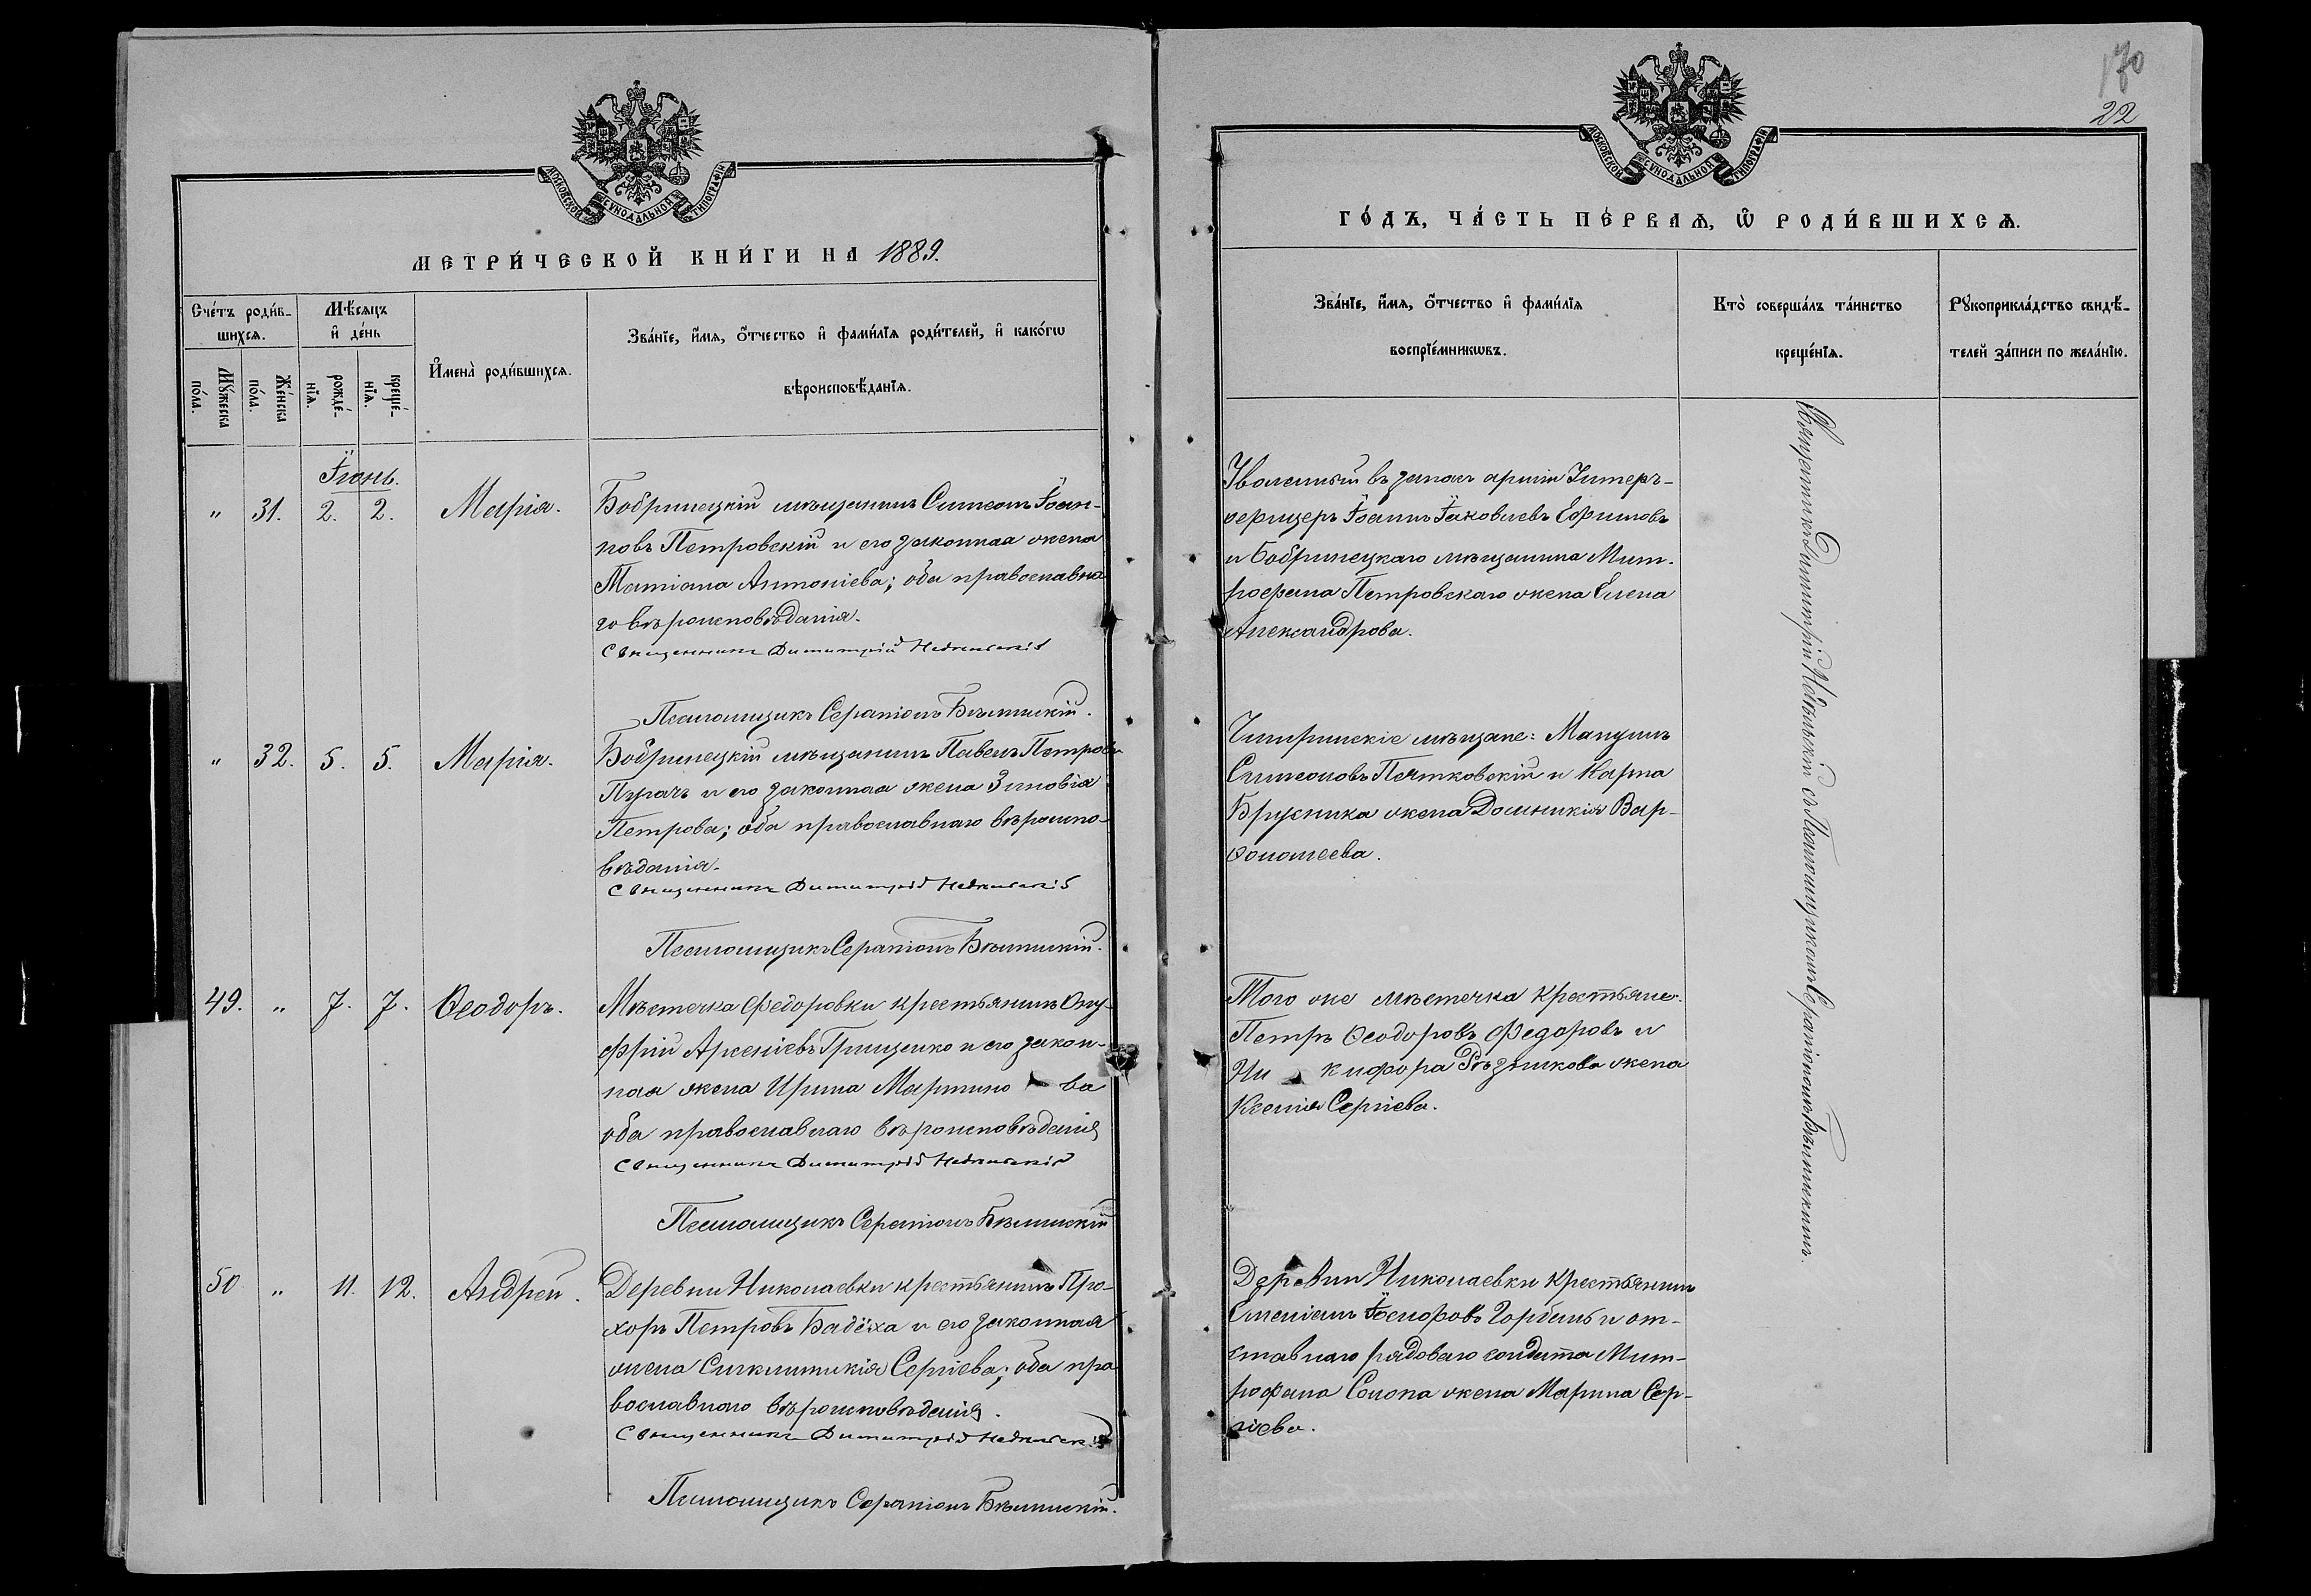 МОСКОВСКОЙ СУНОДАЛЬНОЙ ТИПОГРАФІИ
МЕТРИ́ЧЕСКОЙ КНИ́ГИ НА 1889.
Сче́тъ роди́в-
шихсѧ.
Мѣ́сѧцъ
и҆ де́нь
И҆мена̀ роди́вшихсѧ.
Зва́нїе, и҆́мѧ, ѻ҆́тчество и҆ фами́лїѧ роди́телей, и҆ како́гѡ
вѣроисповѣ́данїѧ.
Мꙋ́жеска
по́ла.
Же́нска
по́ла.
рожде́-
нїѧ.
креще́-
нїѧ.
Іюнь.
" 31. 2. 2. Марія. Бобринецкій мѣщанинъ Симеонъ Іоан-
новъ Петровскій и его законная жена
Татіана Антоніева; оба православна
го вѣроисповѣданія.
Священникъ Димитрій Недѣльскій
Псаломщикъ Серапіонъ Бѣлинскій.
" 32. 5. 5. Марія. Бобринецкій мѣщанинъ Павелъ Петровъ
Пугачъ и его законная жена Зиновія
Петрова; оба православнаго вѣроиспо-
вѣданія.
Священникъ Димитрій Недѣльскій
Псаломщикъ Серапіонъ Бѣлинскій.
49. " 7. 7. Ѳеодоръ. Мѣстечка Федоровки крестьянинъ Ону-
фрій Арсеніевъ Грищенко и его закон-
ная жена Ирина Мартино ва
оба православнаго вѣроисповѣданія
Священникъ Димитрій Недѣльскій
Псаломщикъ Серапіонъ Бѣлинскій
50 " 11. 12. Андрей. Деревни Николаевки крестьянинъ Про-
хоръ Петровъ Бадёха и его законная
жена Сигклитикія Сергіева; оба пра
вославнаго вѣроисповѣданія.
Священникъ Димитрій Недѣльскій
Псаломщикъ Серапіонъ Бѣлинскій.
170
22
МОСКОВСКОЙ СУНОДАЛЬНОЙ ТИПОГРАФІИ
ГО́ДЪ, ЧА́СТЬ ПЕ́РВАѦ, Ѡ҆ РОДИ́ВШИХСѦ.
Зва́нїе, и҆́мѧ, ѻ҆́тчество и҆ фами́лїѧ
воспрїе́мникѡвъ.
Кто̀ соверша́лъ та́инство
креще́нїѧ.
Рꙋкоприкла́дство свидѣ́-
телей за́писи по жела́нїю.
Уволенный въ запасъ арміи Унтеръ-
офицеръ Іоаннъ Іаковлевъ Ефимовъ
и Бобринецкаго мѣщанина Мит-
рофана Петровскаго жена Елена
Александрова.
Чигиринскіе мѣщане: Мануилъ
Симеоновъ Пятковскій и Карпа
Брусника жена Домникія Вар-
ѳоломеева.
Того же мѣстечка крестьяне:
Петръ Ѳеодоровъ Федоровъ и
Ни кифора Рѣзникова жена
Ксенія Сергіева.
Деревни Николаевки крестьянинъ
Евгеній Іосифовъ Горбань и от-
ставнаго рядоваго солдата Мит-
рофана Сопона жена Марина Сер-
гіева.
Священникъ Димитрій Недѣльскій съ Псаломщикомъ Серапіономъ Бѣлинскимъ.